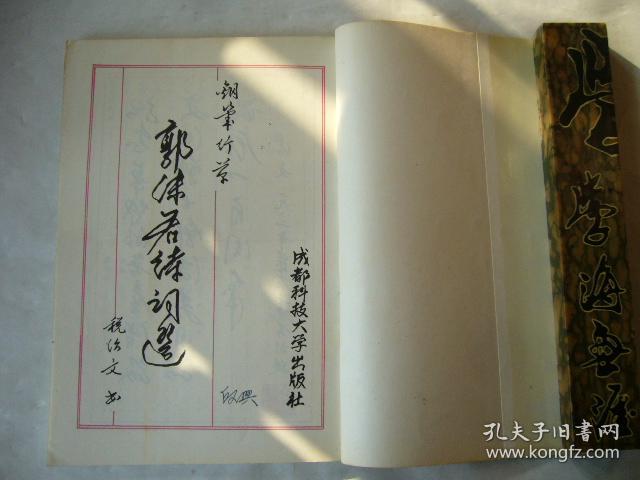 钢筆行草
郭沫若诗词選
税治文书
成都科技大学出版社
学海無涯
孔夫子旧书网
www.kongfz.com